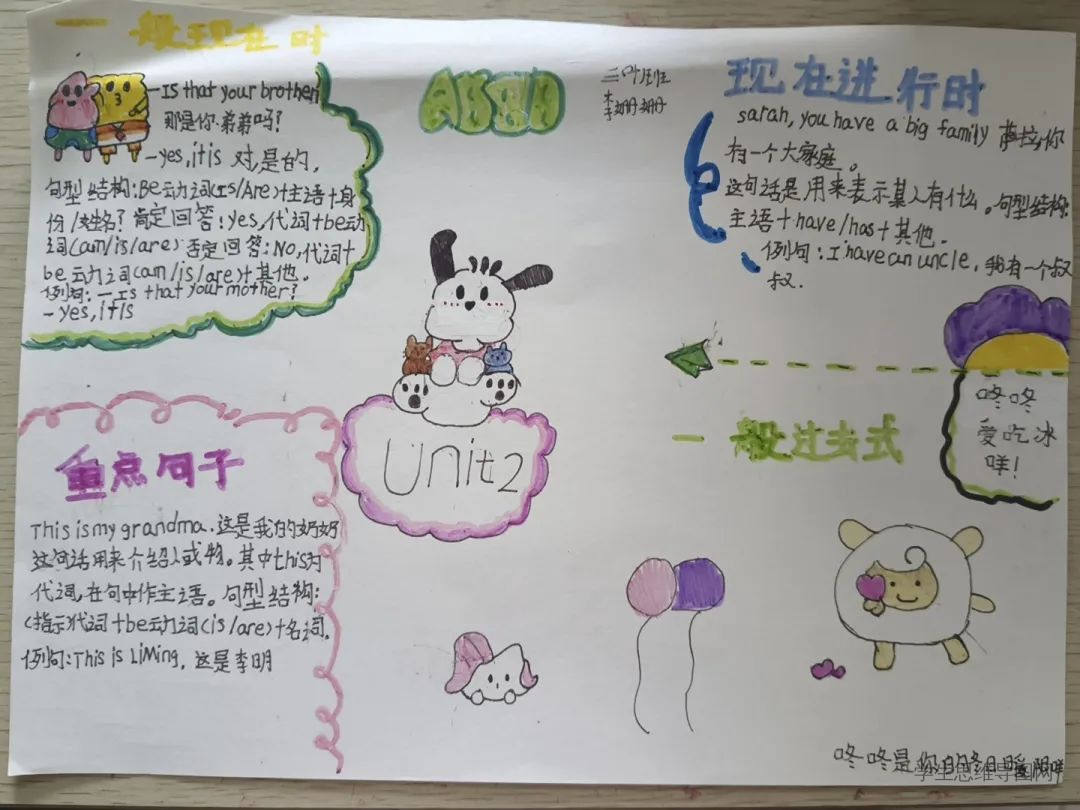 一般现在时
-Is that your brother
那是你弟弟吗?
-yes,it is 对,是的,
句型结构:Be动词(Is/Are)+主语+身
份/姓名? 肯定回答:yes,代词+be动
词(am/is/are)否定回答:No,代词+
be动词(am/is/are)+其他.
例句:-Is that your mother?
-yes,it is
ABCD
三
班
李
现在进行时
sarah, you have a big family 萨拉,你
有一个大家庭。
这句话是用来表示某人有什么。句型结构:
主语+have/has+其他.
例句:I have an uncle,我有一个叔
叔.
咚咚
爱吃冰
咩!
一般过去式
Unit2
重点句子
This is my grandma.这是我的奶奶
这句话用来介绍人或物。其中this为
代词,在句中作主语。句型结构:
(指示)代词+be动词(is/are)+名词.
例句:This is LiMing, 这是李明
咚咚是你的
学生思维导图网